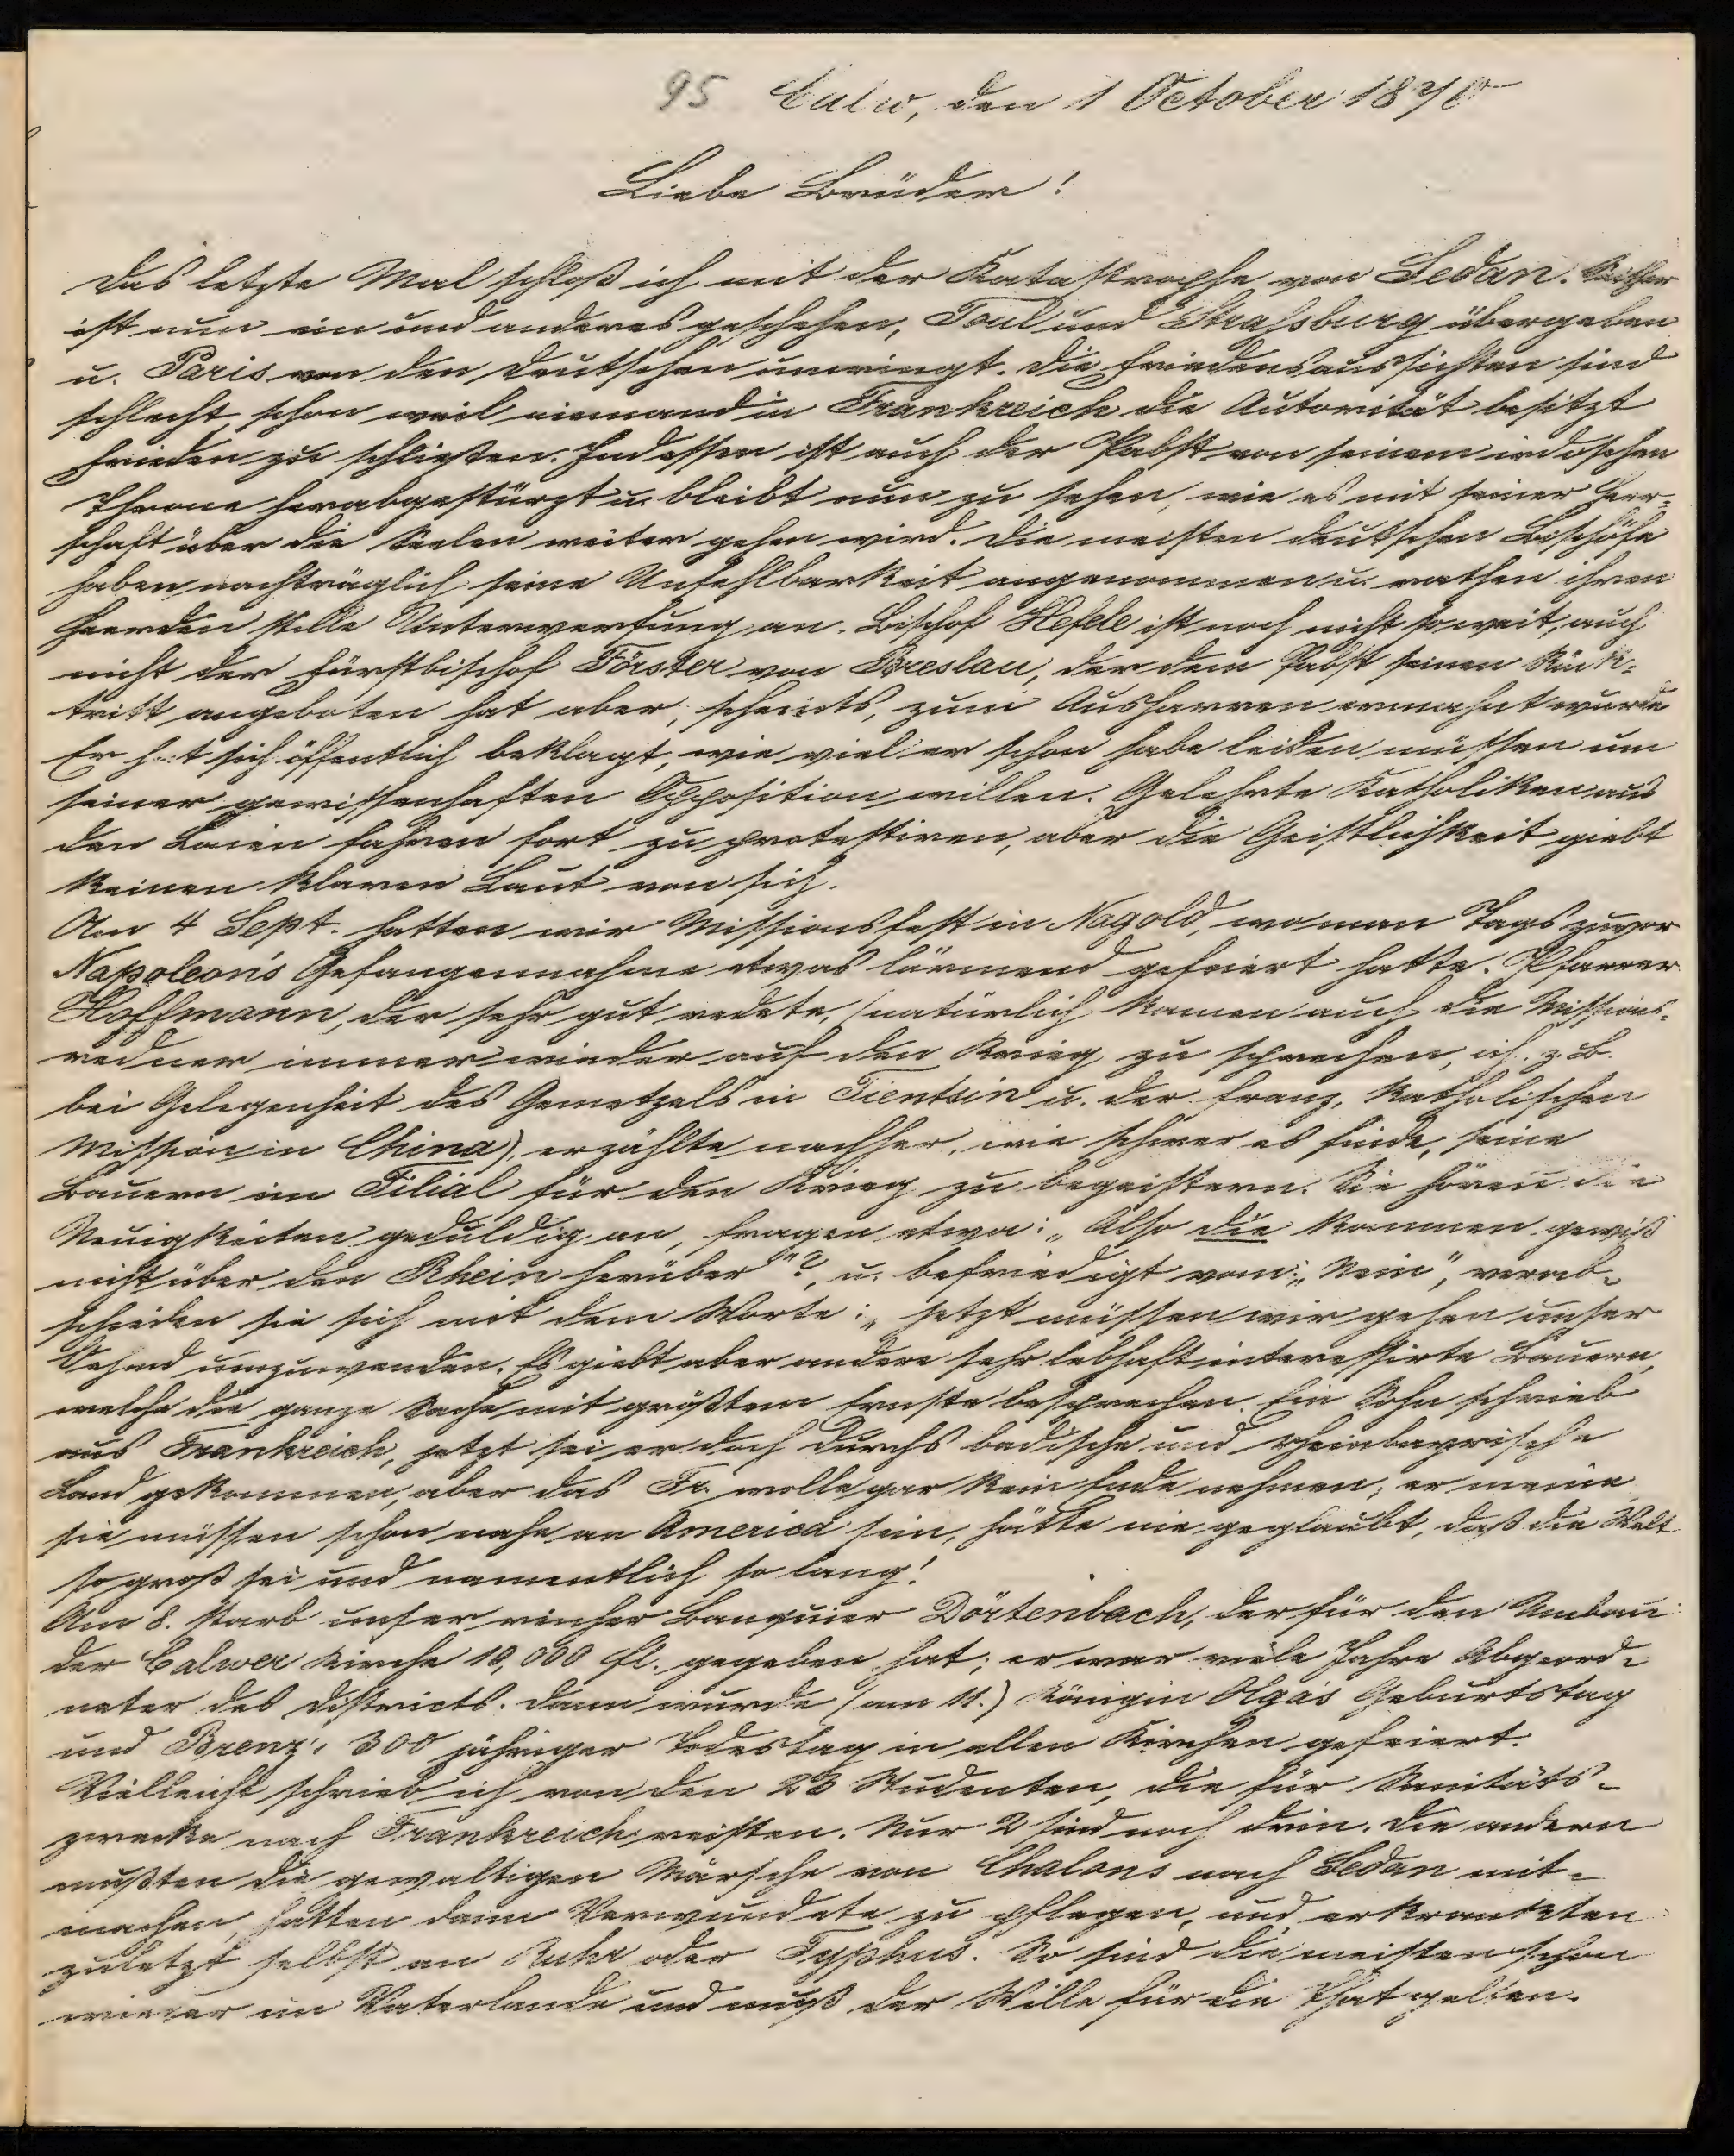 95 Calw, den 1 October 1870
Liebe Brüder!
Das letzte Mal schloß ich mit der Katastrophe von Sedan. Seither
ist nun ein und anderes geschehen, Toul und Strassburg übergeben
u. Paris von den Deutschen umringt. Die Friedensaussichten sind
schlecht, schon weil niemand in Frankreich die Autorität besitzt
Frieden zu schließen. Indessen ist auch der Pabst von seinem irdischen
Throne herabgestürzt u. bleibt nun zu sehen, wie es mit seiner Herr-
schaft über die Seelen weiter gehen wird. Die meisten deutschen Bischöfe
haben nachträglich seine Unfehlbarkeit angenommen u. rathen ihren
Heerden stille Unterwerfung an. Bischof Hefele ist noch nicht so weit, auch
nicht der Fürstbischof Förster von Breslau, der dem Pabst seinen Rück-
tritt angeboten hat aber, scheints, zum Ausharren ermahnt wurde
Er hat sich öffentlich beklagt, wie viel er schon habe leiden müssen um
seiner gewissenhaften Opposition willen. Gelehrte Katholiken aus
den Laien fahren fort zu protestiren, aber die Geistlichkeit giebt
keinen klaren Laut von sich.
Am 4 Sept. hatten wir Missionsfest in Nagold, wo man Tags zuvor
Napoleon's Gefangennahme etwas lärmend gefeiert hatte. Pfarrer
Hoffmann, der sehr gut redete, (natürlich kamen auch die Missions-
redner immer wieder auf den Krieg zu sprechen, ich z. B.
bei Gelegenheit des Gemetzels in Tientsin u. der franz. katholischen
Mission in China), erzählte nachher, wie schwer es finde, seine
Bauern im Filial für den Krieg zu begeistern. Sie hören die
Neuigkeiten geduldig an, fragen etwa: „Also die kommen gewiß
nicht über den Rhein herüber"?, u. befriedigt vom: „Nein", verab-
schieden sie sich mit dem Worte: „jetzt müssen wir gehen unser
Oehmd umzuwenden. Es giebt aber andere sehr lebhaft interessirte Bauern,
welche die ganze Sache mit größtem Ernste besprechen. Ein Sohn schrieb
aus Frankreich, jetzt sei er doch durchs badische und rheinbayrische
Land gekommen, aber das Fr. wolle gar kein Ende nehmen; er meine
sie müssen schon nahe an America sein, hätte nie geglaubt, daß die Welt
so groß sei und namentlich so lang!
Am 8. starb unser reicher Banquier Dörtenbach, der für den Umbau
der Calwer Kirche 10,000 fl. gegeben hat; er war viele Jahre Abgeord-
neter des Districts. Dann wurde (am 11.) Königin Olga's Geburtstag
und Brenz', 300 jähriger Todestag in allen Kirchen gefeiert.
Vielleicht schrieb ich von den 23 Studenten, die für Sanitäts-
zwecke nach Frankreich reisten. Nur 2 sind noch drin. Die andern
mußten die gewaltigen Märsche von Chalons nach Sedan mit-
machen, hatten dann Verwundete zu pflegen, und erkrankten
zuletzt selbst an Ruhr oder Typhus. So sind die meisten schon
wieder im Vaterlande und muß der Wille für die That gelten.